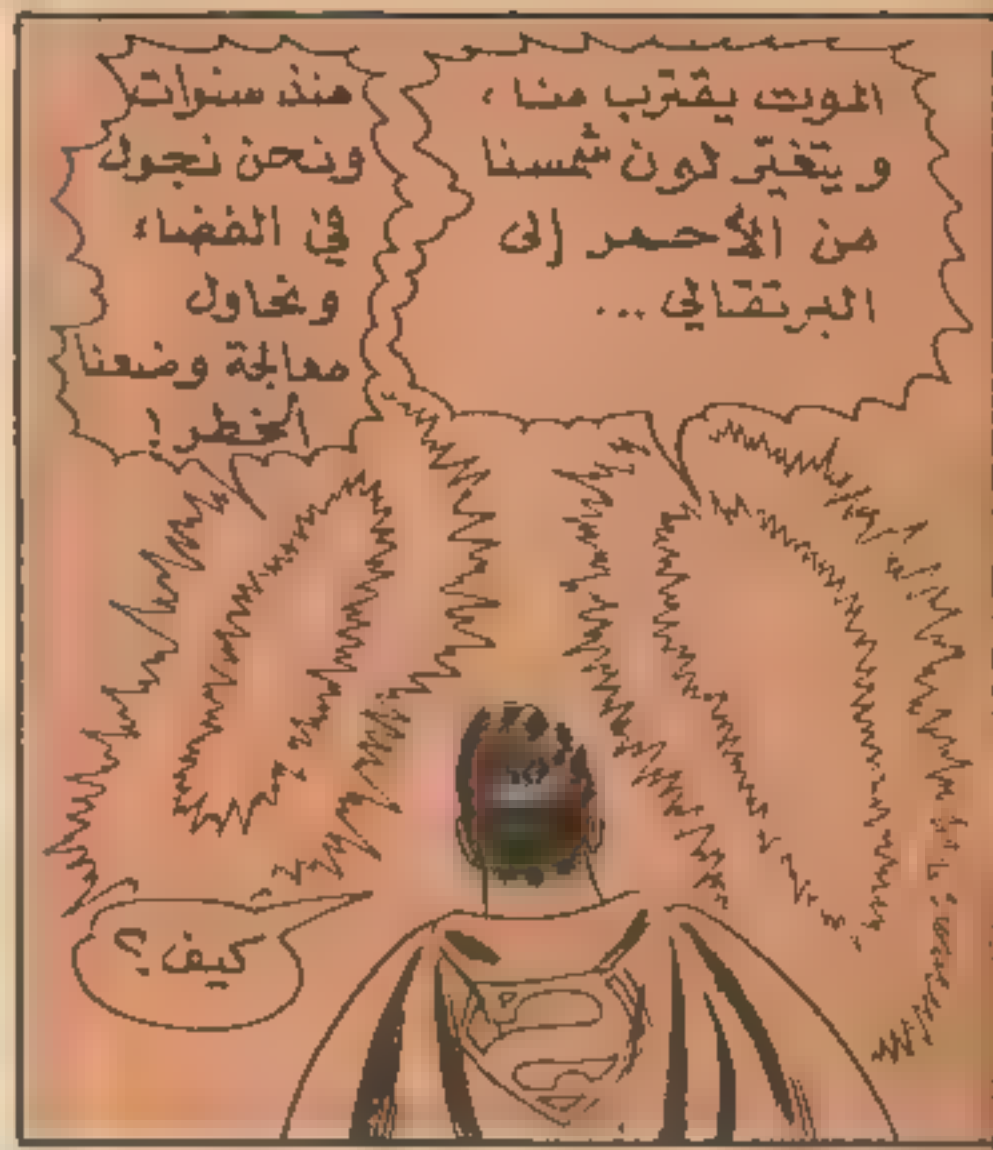 الموت يقترب منا،
ويتغيّر لون شمسنا
من الأحمر إلى
البرتقالي ...
منذ سنوات
ونحن نجول
في الفضاء
ونحاول
معالجة وضعنا
الخطر!
كيف؟